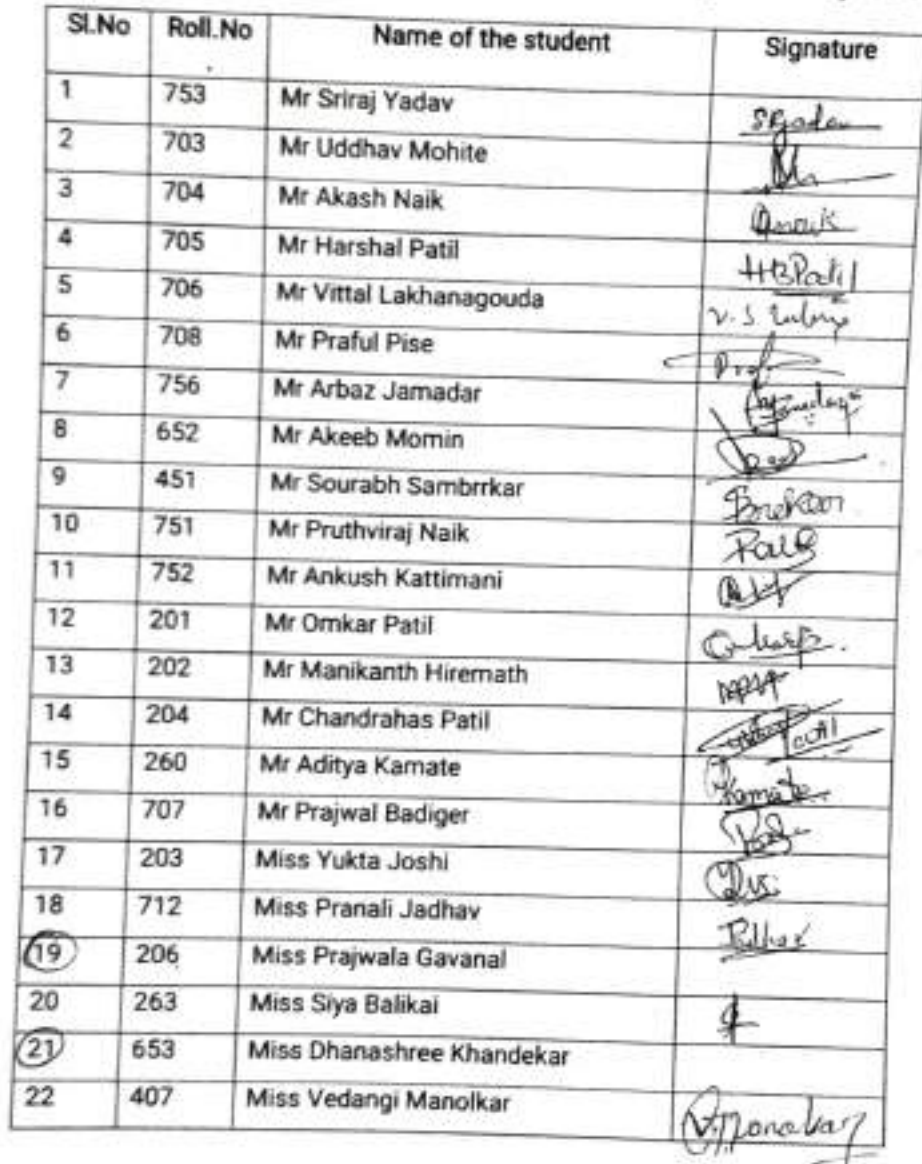 Sl.No Roll.No Name of the student Signature
1 753 Mr Sriraj Yadav SRYadav
2 703 Mr Uddhav Mohite
3 704 Mr Akash Naik
4 705 Mr Harshal Patil HBPatil
5 706 Mr Vittal Lakhanagouda V. S.
6 708 Mr Praful Pise
7 756 Mr Arbaz Jamadar
8 652 Mr Akeeb Momin
9 451 Mr Sourabh Sambrrkar
10 751 Mr Pruthviraj Naik
11 752 Mr Ankush Kattimani
12 201 Mr Omkar Patil
13 202 Mr Manikanth Hiremath
14 204 Mr Chandrahas Patil
15 260 Mr Aditya Kamate Kamate
16 707 Mr Prajwal Badiger
17 203 Miss Yukta Joshi
18 712 Miss Pranali Jadhav
19 206 Miss Prajwala Gavanal
20 263 Miss Siya Balikai
21 653 Miss Dhanashree Khandekar
22 407 Miss Vedangi Manolkar